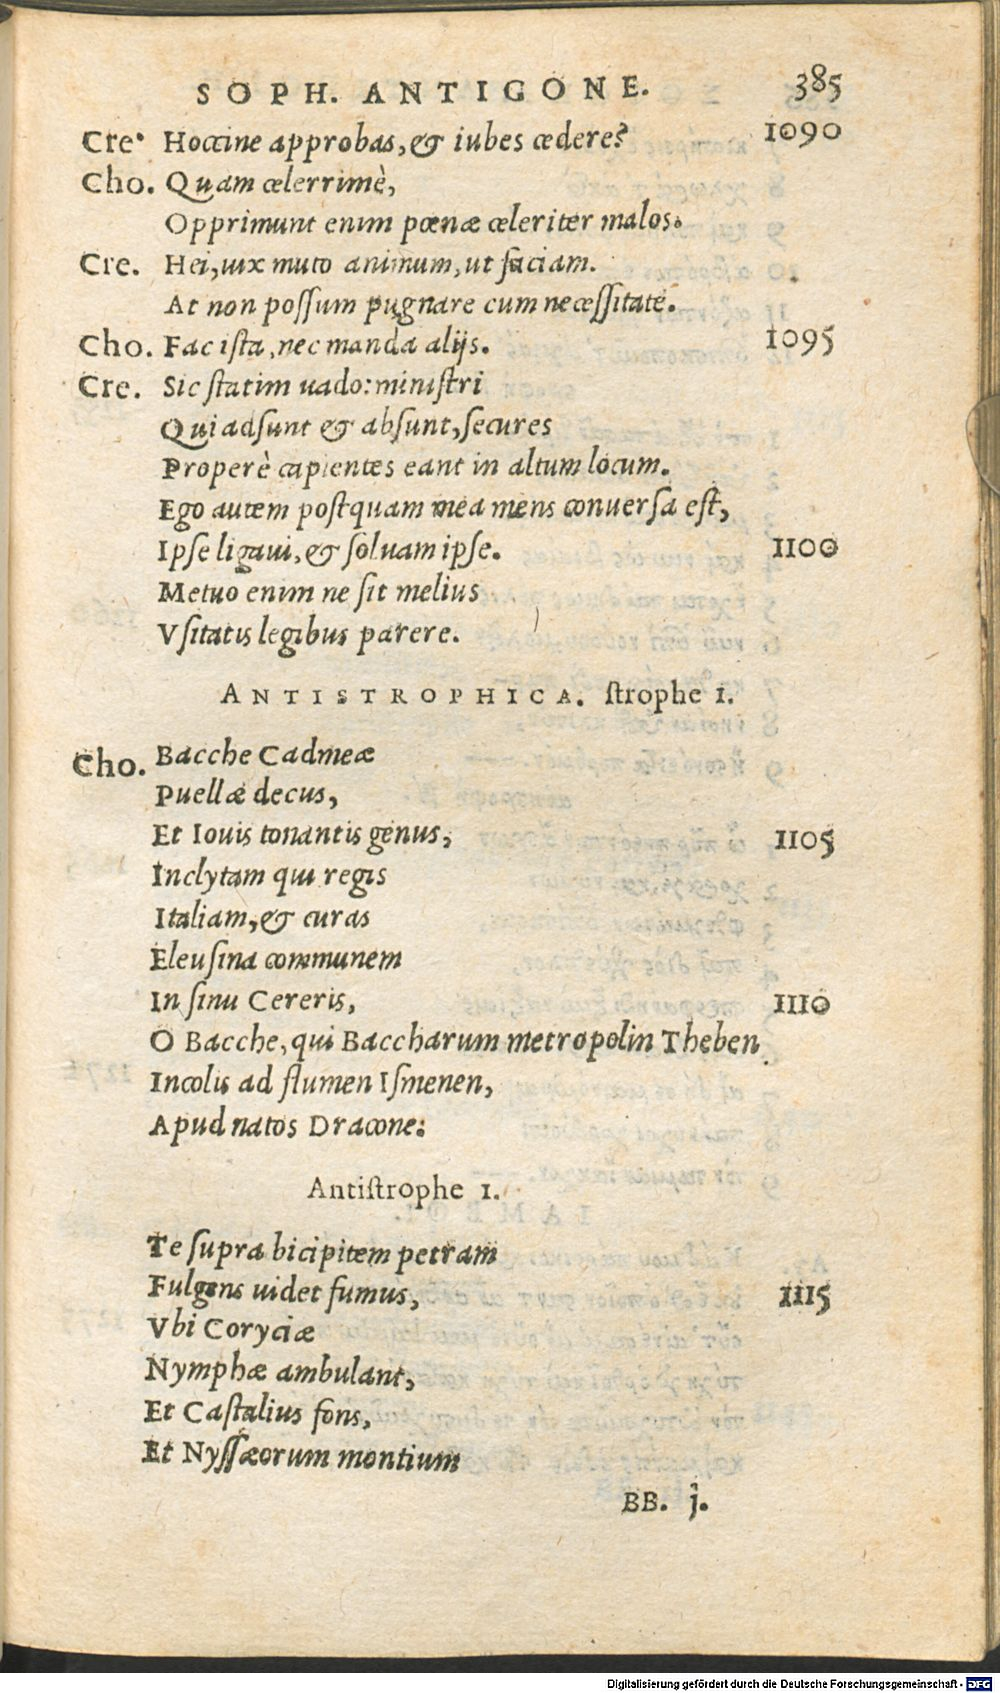 SOPH. ANTIGONE. 385
Cre. Hoccine approbas, & iubes cedere? 1090
Cho. Quam celerrimè,
Opprimunt enim pœnæ celeriter malos.
Cre. Hei, uix muto animum, ut faciam.
At non possum pugnare cum necessitate.
Cho. Fac ista, nec manda alijs. 1095
Cre. Sic statim uado: ministri
Qui adsunt & absunt, secures
Properè capientes eant in altum locum.
Ego autem postquam mea mens conuersa est,
Ipse ligaui, & soluam ipse. 1100
Metuo enim ne sit melius
Vsitatis legibus parere.
ANTISTROPHICA. strophe 1.
Cho. Bacche Cadmeæ
Puellæ decus,
Et Iouis tonantis genus, 1105
Inclytam qui regis
Italiam, & curas
Eleusina communem
In sinu Cereris, 1110
O Bacche, qui Baccharum metropolin Theben
Incolis ad flumen Ismenen,
Apud natos Dracone:
Antistrophe 1.
Te supra bicipitem petram
Fulgens uidet fumus, 1115
Vbi Coryciæ
Nymphæ ambulant,
Et Castalius fons,
Et Nyssæorum montium
BB. j.
Digitalisierung gefördert durch die Deutsche Forschungsgemeinschaft - DFG